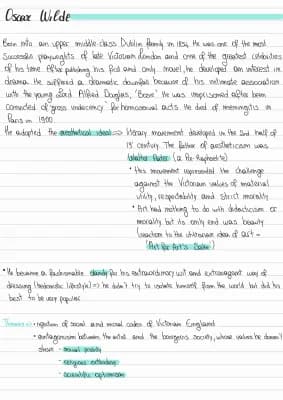 Oscar Wilde
Born into an upper middle class Dublin family in 1854. He was one of the most
successful playwrights of late Victorian London and one of the greatest celebrities
of his time. After publishing his first and only novel, he developed an interest in
drama. He suffered a dramatic downfall because of his intimate association
with the young Lord Alfred Douglas, 'Bosie'. He was imprisoned after been
convicted of "gross indecency" for homosexual acts. He died of meningitis in
Paris in 1900
He adopted the aesthetical ideal => literary movement developed in the 2nd half of
19° century. The father of aestheticism was
Walter Pater (a Pre-Raphaelite)
• this movement represented the challenge
against the Victorian values of material
utility, respectability and strict morality
• Art had nothing to do with didacticism or
morality but its only end was beauty
(reaction to the utilitarian idea of art -
(Art for Art's Sake)
• He became a fashionable dandy for his extraordinary wit and extravagant way of
dressing (hedonistic lifestyle) => he didn't try to isolate himself from the world but did his
best to be very popular
Themes => • rejection of social and moral codes of Victorian England
• antagonism between the artist and the bourgeois society, whose values he doesn't
share - moral probity
- religious
- scientific optimism